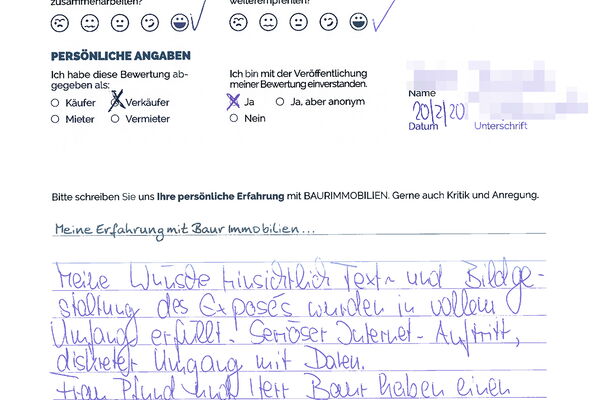 zusammenarbeiten?
weiterempfehlen?
PERSÖNLICHE ANGABEN
Ich habe diese Bewertung ab-
gegeben als:
Käufer Verkäufer
Mieter Vermieter
Ich bin mit der Veröffentlichung
meiner Bewertung einverstanden.
Ja Ja, aber anonym
Nein
Name
20/2/20
Datum Unterschrift
Bitte schreiben Sie uns Ihre persönliche Erfahrung mit BAURIMMOBILIEN. Gerne auch Kritik und Anregung.
Meine Erfahrung mit Baur Immobilien...
Meine Wünsche hinsichtlich Text- und Bildge-
staltung des Exposés wurden in vollem
Umfang erfüllt. Seriöser Internet-Auftritt,
diskreter Umgang mit Daten.
Frau Pfund und Herr Baur haben einen